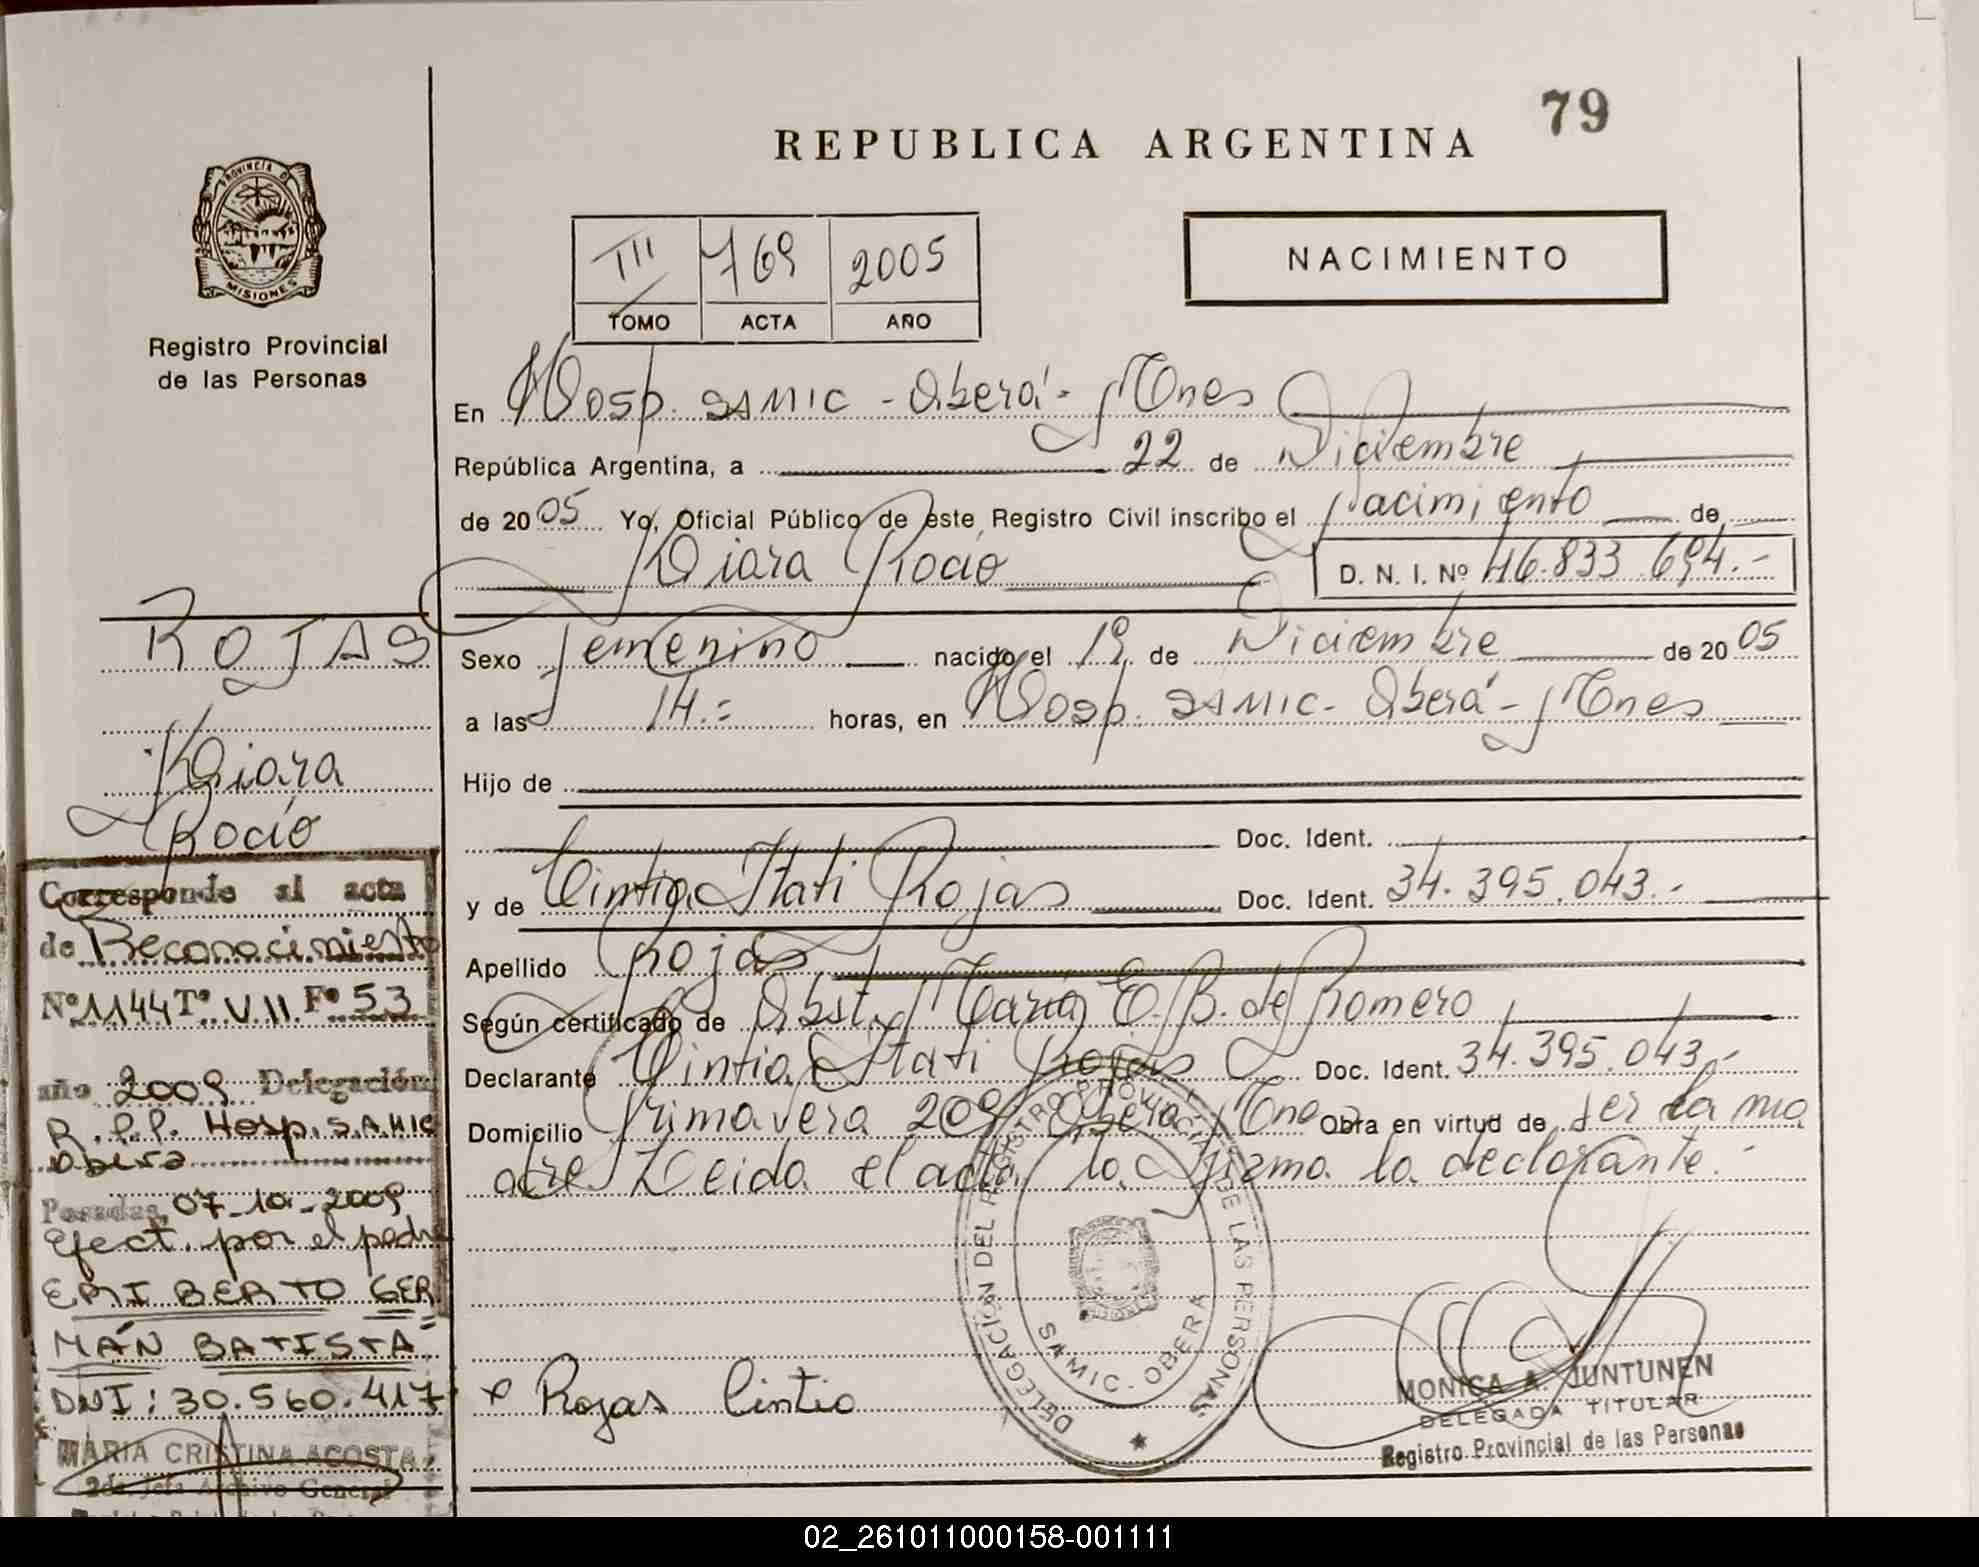 79
REPUBLICA ARGENTINA
PROVINCIA DE
MISIONES
Registro Provincial
de las Personas
III 769 2005
TOMO ACTA AÑO
NACIMIENTO
En Hosp. SAMIC - Oberá - Mnes
República Argentina, a 22 de Diciembre
de 2005 Yo, Oficial Público de este Registro Civil inscribo el Nacimiento de
Kiara Rocío D. N. I. Nº 46.833.694.-
ROJAS
Kiara
Rocío
Sexo femenino nacido el 19 de Diciembre de 2005
a las 14.= horas, en Hosp. SAMIC - Oberá - Mnes
Hijo de
Doc. Ident.
y de Cintia Itati Rojas Doc. Ident. 34.395.043.-
Apellido Rojas
Según certificado de Obst. María E. B. de Romero
Declarante Cintia Itati Rojas Doc. Ident. 34.395.043.-
Domicilio Primavera 209 Oberá Mnes Obra en virtud de ser la ma
dre Leida el acta la firma la declarante.-
Corresponde al acta
de Reconocimiento
Nº 1144 Tº VII Fº 53
año 2009 Delegación
R.P.P. Hosp. S.A.MIC
Oberá
Posadas, 07-10-2009
Efect. por el padre
ERIBERTO GER
MÁN BATISTA
DNI: 30.560.417
MARIA CRISTINA ACOSTA
2da. Jefa Archivo General
DELEGACIÓN DEL REGISTRO PROVINCIAL DE LAS PERSONAS
SAMIC - OBERA
Rojas Cintia
MONICA A. JUNTUNEN
DELEGADA TITULAR
Registro Provincial de las Personas
02_261011000158-001111